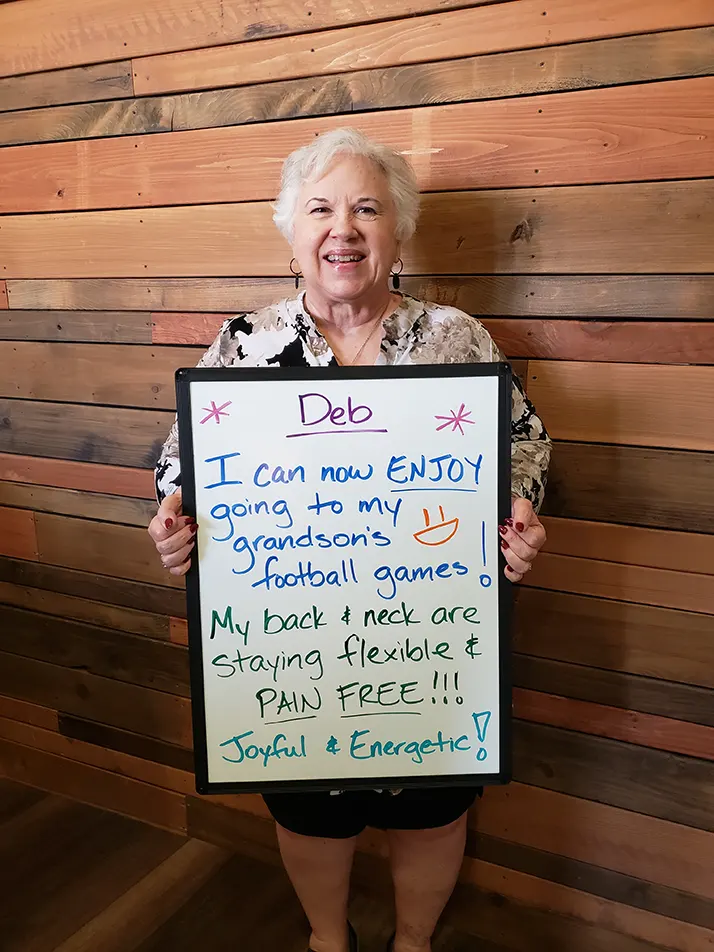 Deb
I can now ENJOY
going to my
grandson's
football games!
My back & neck are
staying flexible &
PAIN FREE!!!
Joyful & Energetic!